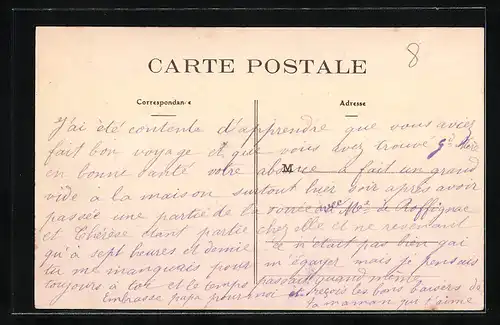 8
CARTE POSTALE
Correspondance
Adresse
M
J'ai été contente d'apprendre que vous aviez
fait bon voyage et que vous avez trouvé gd Mère
en bonne santé votre absence a fait un grand
vide a la maison surtout hier soir après avoir
passée une partie de la soirée avec Mes de Roffignac
et Thérèse étant partie chez elle et ne revenant
qu'à sept heures et demie ce n'était pas bien gai
tu me manquais pour m'égayer mais je pensais
toujours à toi et le temps passait quand même
embrasse papa pour moi et reçois les bons baisers de
ta maman qui t'aime